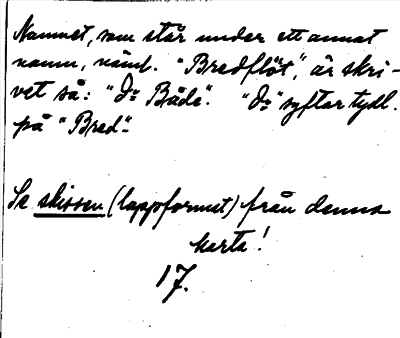 Namnet, som står under ett annat
namn, näml. "Bredflöt", är skri-
vet så: "Do Både". "Do" syftar tydl.
på "Bred".
Se skissen (lappformat) från denna
karta!
17.